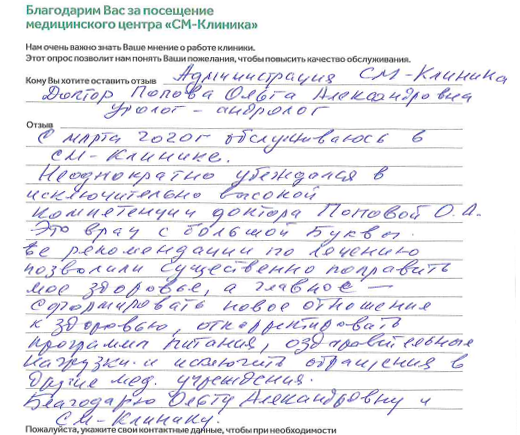 Благодарим Вас за посещение
медицинского центра «СМ-Клиника»
Нам очень важно знать Ваше мнение о работе клиники.
Этот опрос позволит нам понять Ваши пожелания, чтобы повысить качество обслуживания.
Кому Вы хотите оставить отзыв Администрация СМ-Клиника
Доктор Попова Ольга Александровна
уролог-андролог
Отзыв
С марта 2020г обслуживаюсь в
СМ-Клинике.
Неоднократно убеждался в
исключительно высокой
компетенции доктора Поповой О.А.
Это врач с большой буквы.
Ее рекомендации по лечению
позволили существенно поправить
мое здоровье, а главное —
сформировать новое отношение
к здоровью, откорректировать
программы питания, оздоровительные
нагрузки и исключить обращения в
другие мед. учреждения.
Благодарю Ольгу Александровну и
СМ-Клинику.
Пожалуйста, укажите свои контактные данные, чтобы при необходимости